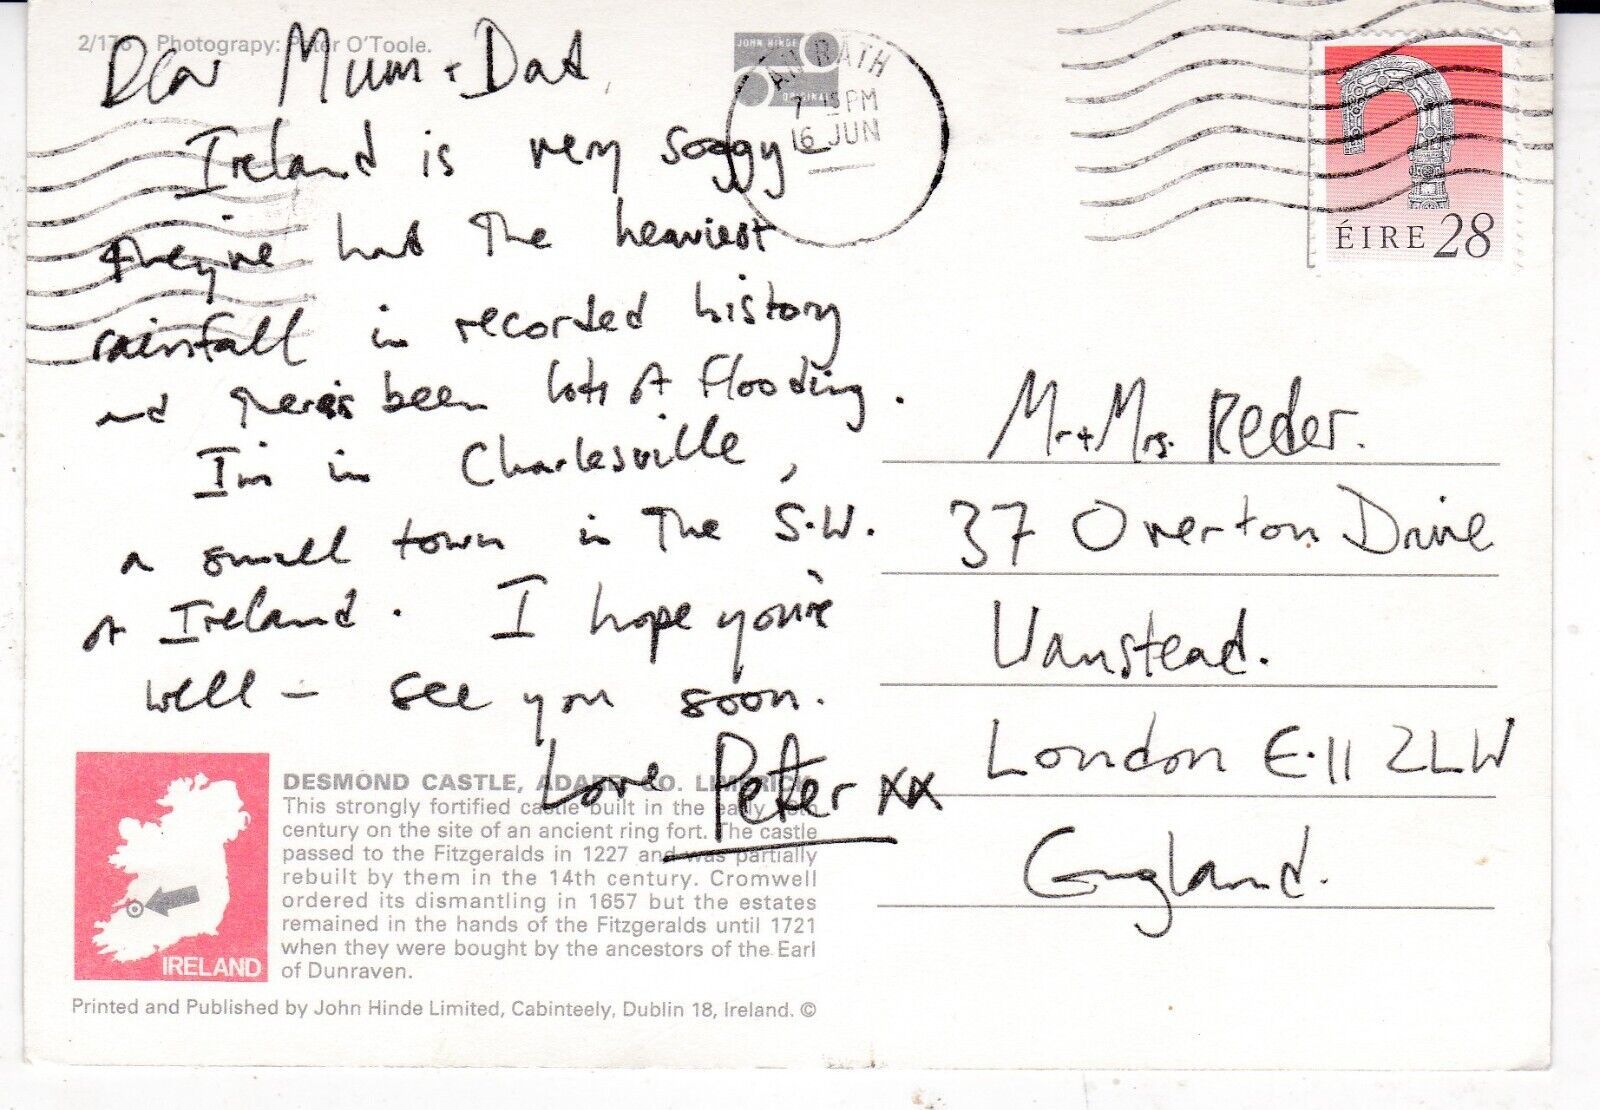 2/176 Photograpy: Peter O'Toole.
JOHN HINDE
ORIGINALS
AN RATH
7-15PM
16 JUN
ÉIRE 28
Dear Mum + Dad,
Ireland is very soggy -
they've had the heaviest
rainfall in recorded history
and there's been lots of flooding.
I'm in Charlesville,
a small town in the S.W.
of Ireland. I hope you're
well - see you soon.
Love Peter xx
Mr + Mrs. Reder.
37 Overton Drive
Wanstead.
London E.11 2LW
England.
IRELAND
DESMOND CASTLE, ADARE, CO. LIMERICK.
This strongly fortified castle built in the early 13th
century on the site of an ancient ring fort. The castle
passed to the Fitzgeralds in 1227 and was partially
rebuilt by them in the 14th century. Cromwell
ordered its dismantling in 1657 but the estates
remained in the hands of the Fitzgeralds until 1721
when they were bought by the ancestors of the Earl
of Dunraven.
Printed and Published by John Hinde Limited, Cabinteely, Dublin 18, Ireland. ©